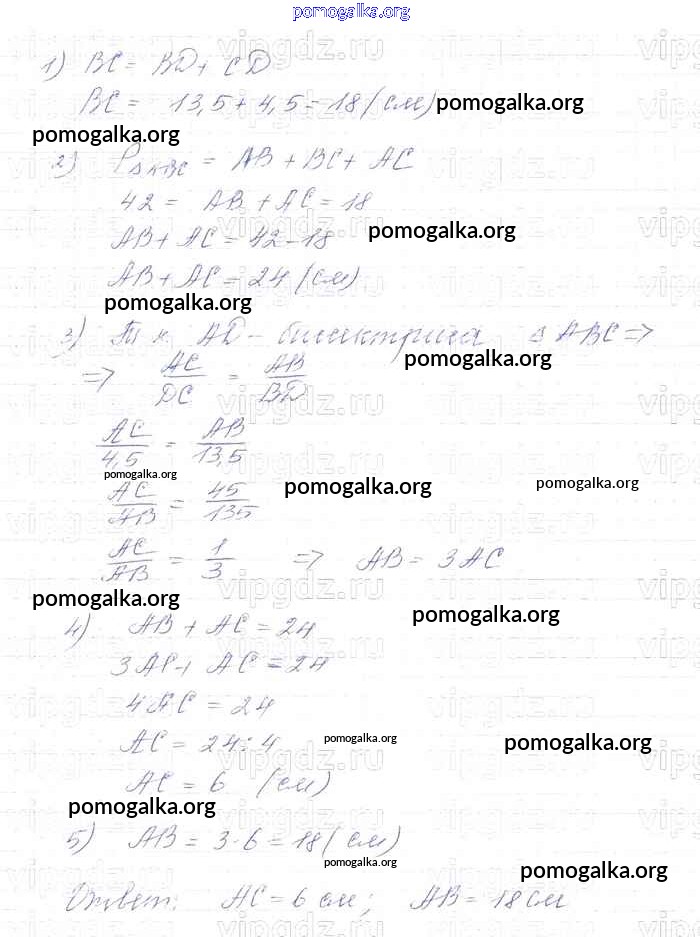 pomogalka.org
vipgdz.ru
1) BC = BD + CD
BC = 13,5 + 4,5 = 18 (см) pomogalka.org
pomogalka.org
2) P△ABC = AB + BC + AC
42 = AB + AC = 18
AB + AC = 42 - 18 pomogalka.org
AB + AC = 24 (см)
pomogalka.org
3) Т. к. AD - биссектриса △ ABC =>
pomogalka.org
=> AC/DC = AB/BD
AC/4,5 = AB/13,5
pomogalka.org
AC/AB = 45/135 pomogalka.org pomogalka.org
AC/AB = 1/3 => AB = 3AC
pomogalka.org pomogalka.org
4) AB + AC = 24
3AC + AC = 24
4AC = 24
AC = 24 : 4 pomogalka.org pomogalka.org
AC = 6 (см)
pomogalka.org
5) AB = 3 · 6 = 18 (см)
pomogalka.org pomogalka.org
Ответ: AC = 6 см; AB = 18 см